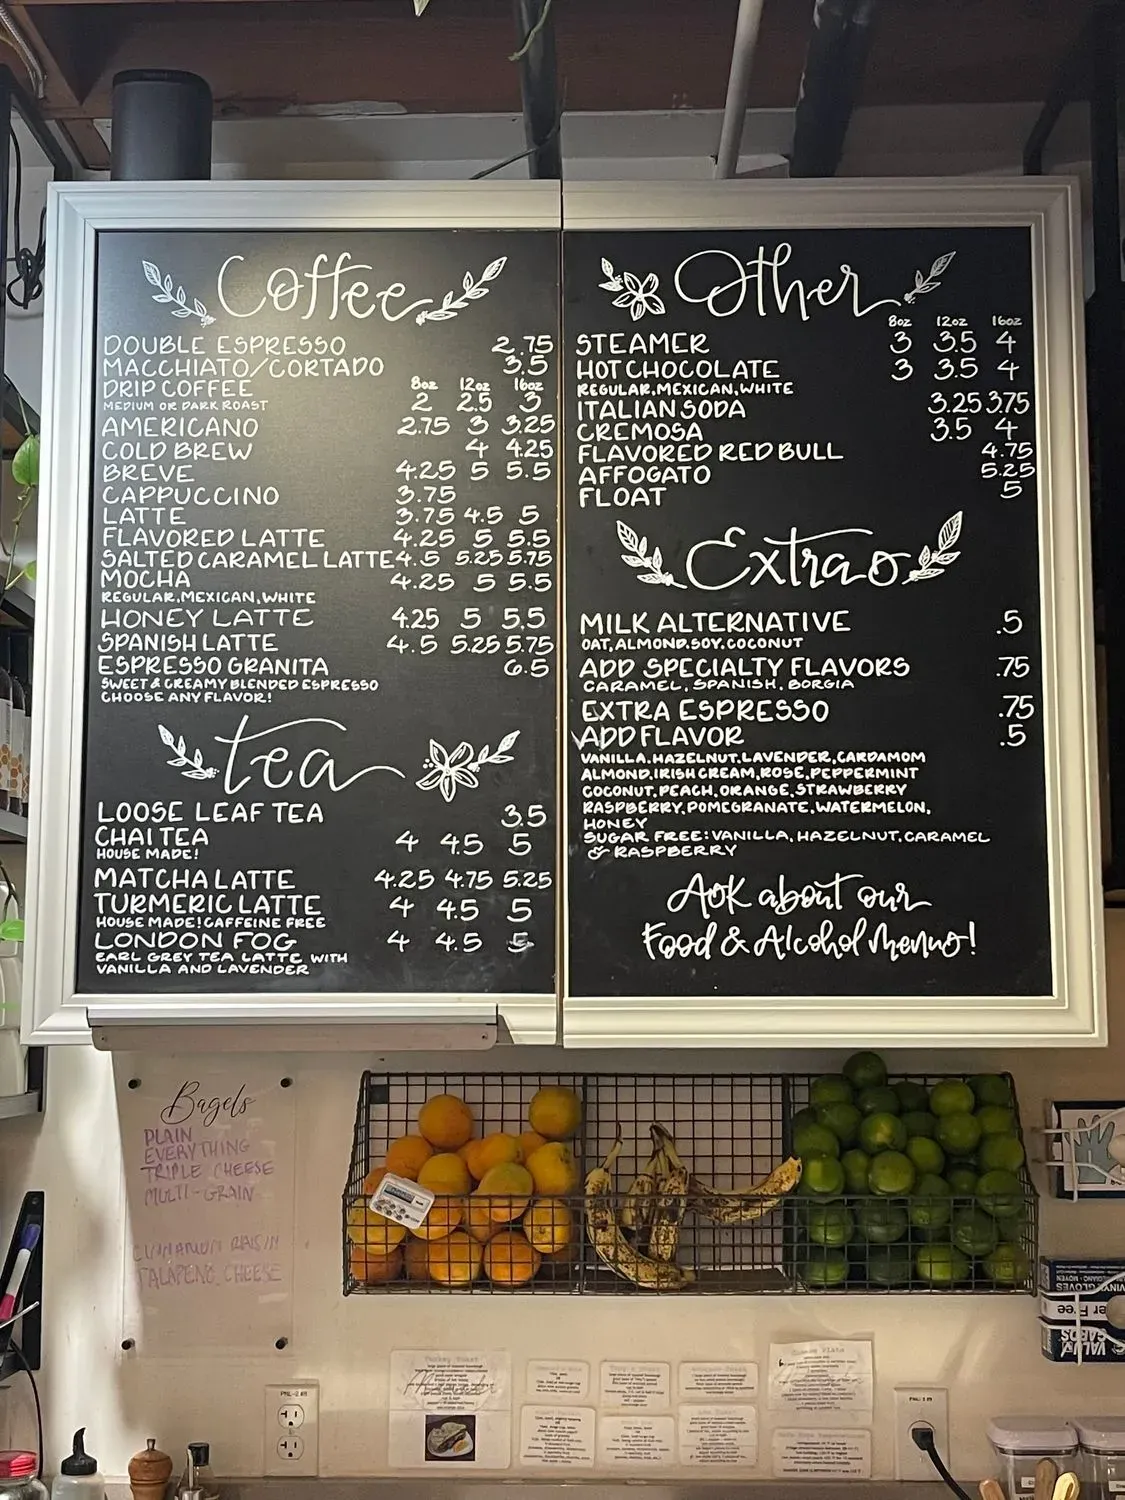 Coffee
DOUBLE ESPRESSO 2.75
MACCHIATO/CORTADO 3.5
DRIP COFFEE 8oz 12oz 16oz
MEDIUM OR DARK ROAST 2 2.5 3
AMERICANO 2.75 3 3.25
COLD BREW 4 4.25
BREVE 4.25 5 5.5
CAPPUCCINO 3.75
LATTE 3.75 4.5 5
FLAVORED LATTE 4.25 5 5.5
SALTED CARAMEL LATTE 4.5 5.25 5.75
MOCHA 4.25 5 5.5
REGULAR, MEXICAN, WHITE
HONEY LATTE 4.25 5 5.5
SPANISH LATTE 4.5 5.25 5.75
ESPRESSO GRANITA 6.5
SWEET & CREAMY BLENDED ESPRESSO
CHOOSE ANY FLAVOR!
tea
LOOSE LEAF TEA 3.5
CHAI TEA 4 4.5 5
HOUSE MADE!
MATCHA LATTE 4.25 4.75 5.25
TURMERIC LATTE 4 4.5 5
HOUSE MADE! CAFFEINE FREE
LONDON FOG 4 4.5 5
EARL GREY TEA LATTE WITH
VANILLA AND LAVENDER
Other
8oz 12oz 16oz
STEAMER 3 3.5 4
HOT CHOCOLATE 3 3.5 4
REGULAR, MEXICAN, WHITE
ITALIAN SODA 3.25 3.75
CREMOSA 3.5 4
FLAVORED RED BULL 4.75
AFFOGATO 5.25
FLOAT 5
Extras
MILK ALTERNATIVE .5
OAT, ALMOND, SOY, COCONUT
ADD SPECIALTY FLAVORS .75
CARAMEL, SPANISH, BORGIA
EXTRA ESPRESSO .75
ADD FLAVOR .5
VANILLA, HAZELNUT, LAVENDER, CARDAMOM
ALMOND, IRISH CREAM, ROSE, PEPPERMINT
COCONUT, PEACH, ORANGE, STRAWBERRY
RASPBERRY, POMEGRANATE, WATERMELON,
HONEY
SUGAR FREE: VANILLA, HAZELNUT, CARAMEL
& RASPBERRY
Ask about our
Food & Alcohol menus!
Bagels
PLAIN
EVERYTHING
TRIPLE CHEESE
MULTI-GRAIN
CINNAMON RAISIN
JALAPENO CHEESE